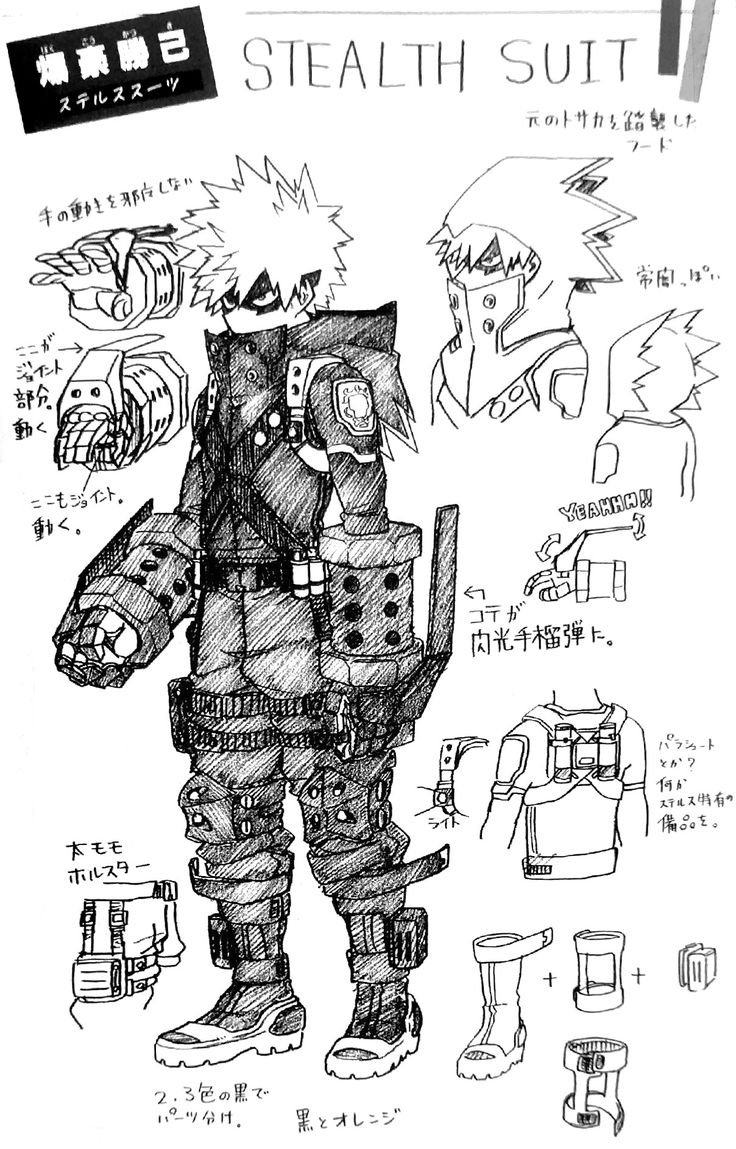 ばくごうかつき
爆豪勝己
ステルススーツ
STEALTH SUIT
元のトサカを踏襲した
フード
手の動きを邪魔しない
常闇っぽい
ここが
ジョイント
部分。
動く
ここもジョイント。
動く。
YEAHHH!!
コテが
閃光手榴弾に。
パラシュート
とか?
何か
ステルス特有の
備品を。
ライト
太モモ
ホルスター
+
+
2.3色の黒で
パーツ分け。
黒とオレンジ